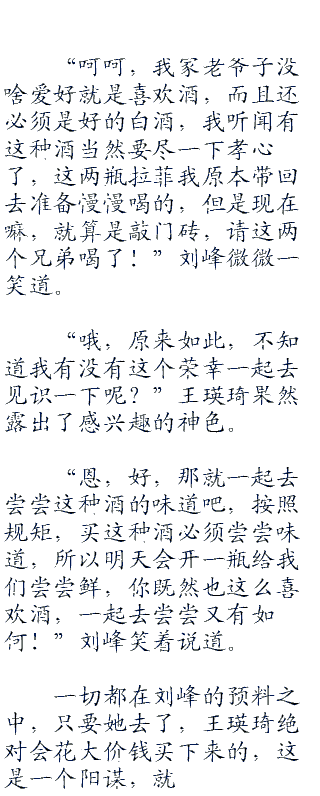 “呵呵，我冢老爷子没
啥爱好就是喜欢酒，而且还
必须是好的白酒，我听闻有
这种酒当然要尽一下孝心
了，这两瓶拉菲我原本带回
去准备慢慢喝的，但是现在
嘛，就算是敲门砖，请这两
个兄弟喝了！” 刘峰微微一
笑道。
“哦，原来如此，不知
道我有没有这个荣幸一起去
见识一下呢？” 王瑛琦果然
露出了感兴趣的神色。
“恩，好，那就一起去
尝尝这种酒的味道吧，按照
规矩，买这种酒必须尝尝味
道，所以明天会开一瓶给我
们尝尝鲜，你既然也这么喜
欢酒，一起去尝尝又有如
何！” 刘峰笑着说道。
一切都在刘峰的预料之
中，只要她去了，王瑛琦绝
对会花大价钱买下来的，这
是一个阳谋，就